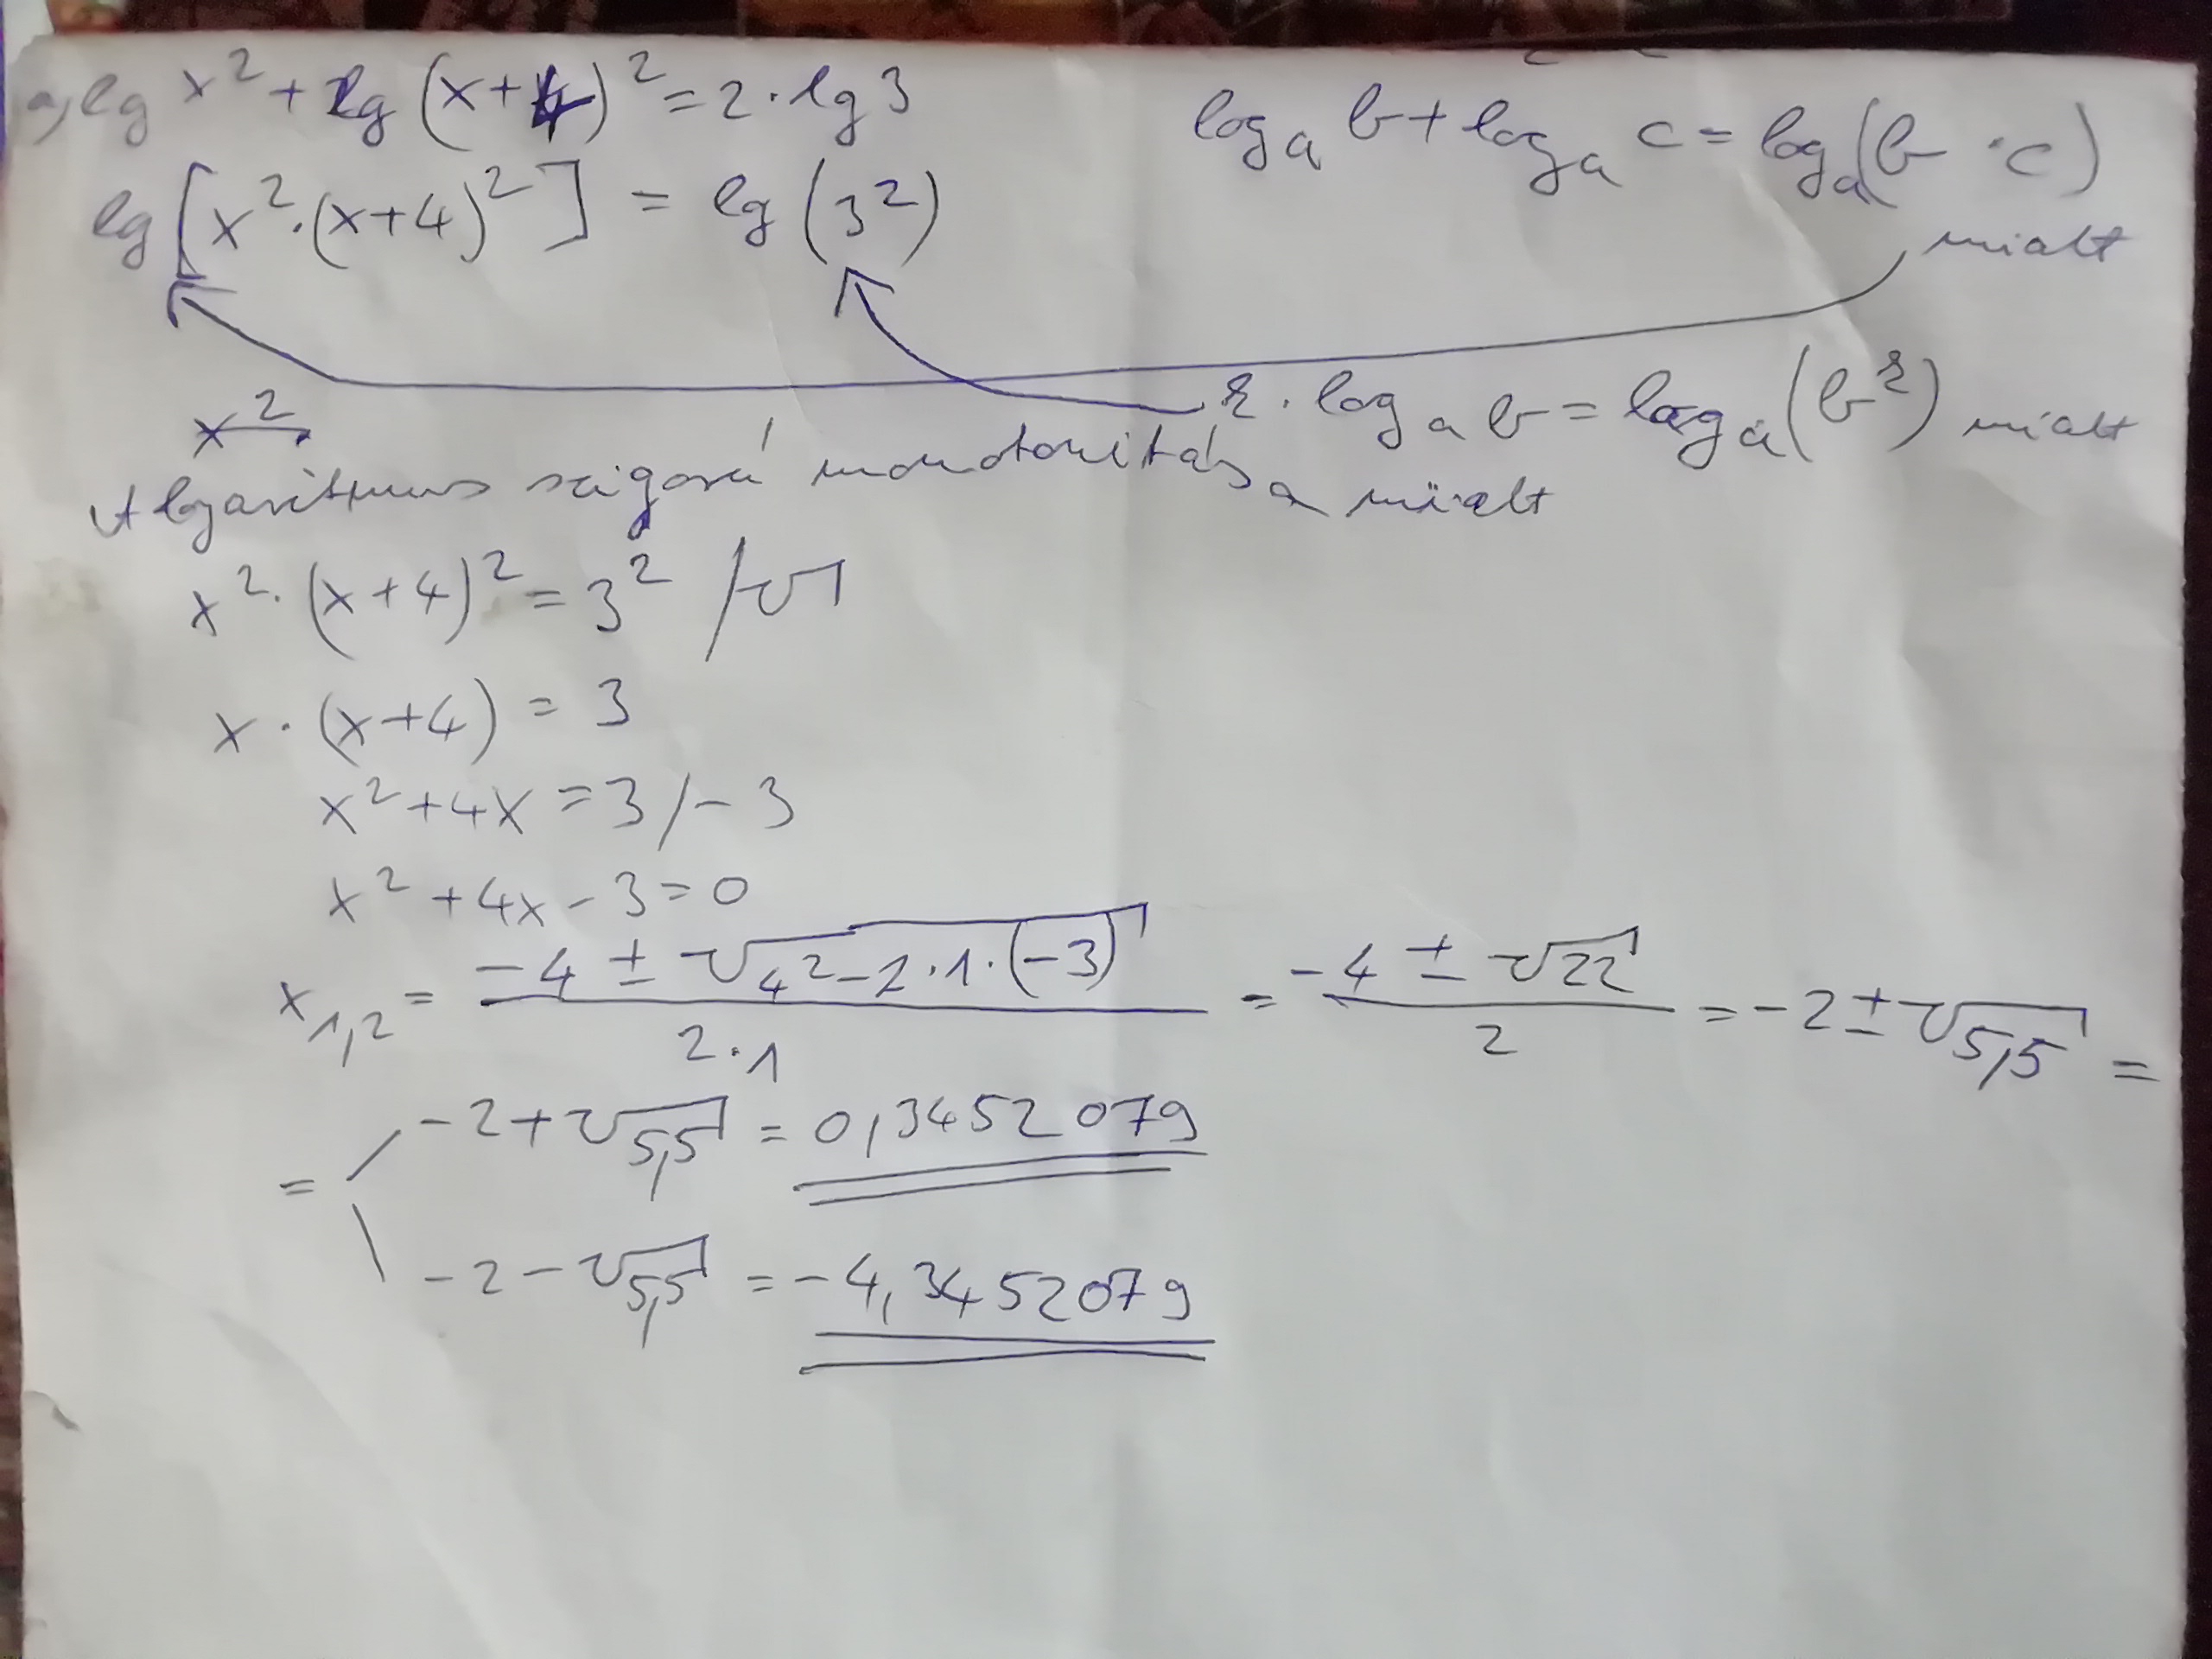 a, lg x² + lg (x+4)² = 2·lg 3
log_a b + log_a c = log_a (b·c)
miatt
lg [x²·(x+4)²] = lg (3²)
r·log_a b = log_a (b^r) miatt
x²
A logaritmus szigorú monotonitása miatt
x²·(x+4)² = 3² /√
x·(x+4) = 3
x²+4x = 3 /-3
x² +4x-3=0
x_{1,2} = (-4 ± √(4²-2·1·(-3)))/(2·1) = (-4 ± √22)/2 = -2 ± √5,5 =
= -2+√5,5 = 0,3452079
-2-√5,5 = -4,3452079